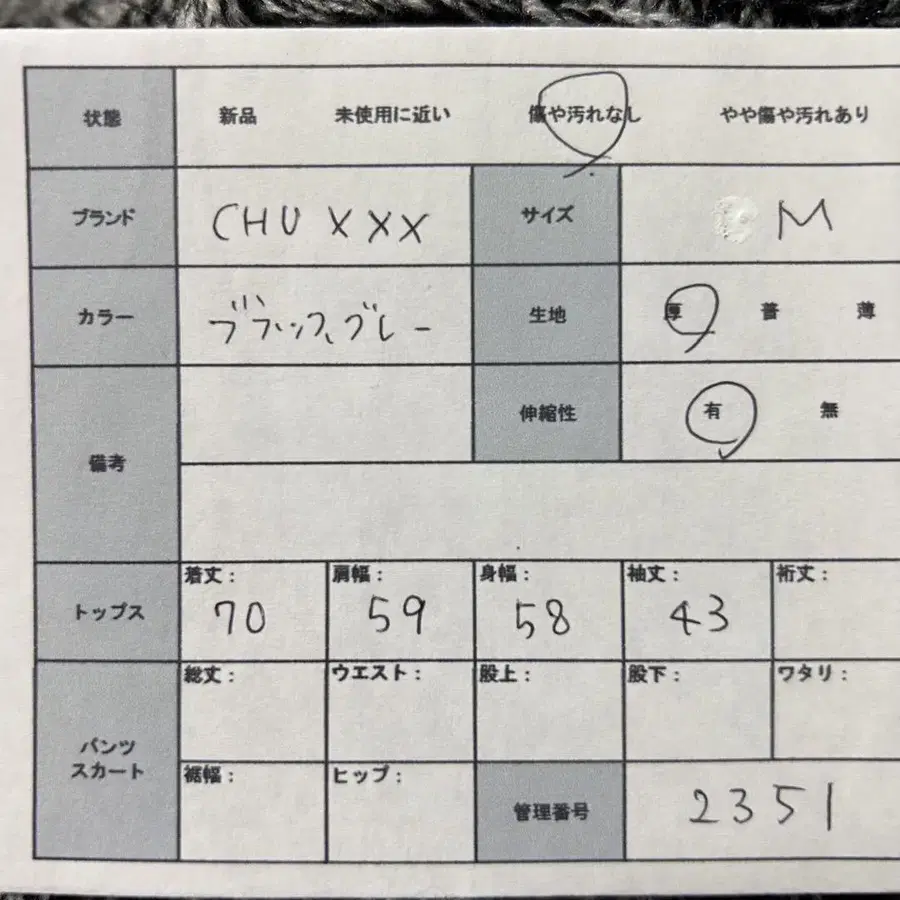 状態 新品 未使用に近い 傷や汚れなし やや傷や汚れあり
ブランド CHU XXX サイズ M
カラー ブラック、グレー 生地 厚 普 薄
備考 伸縮性 有 無
トップス 着丈: 70 肩幅: 59 身幅: 58 袖丈: 43 裄丈:
パンツ
スカート
総丈: ウエスト: 股上: 股下: ワタリ:
裾幅: ヒップ: 管理番号 2351